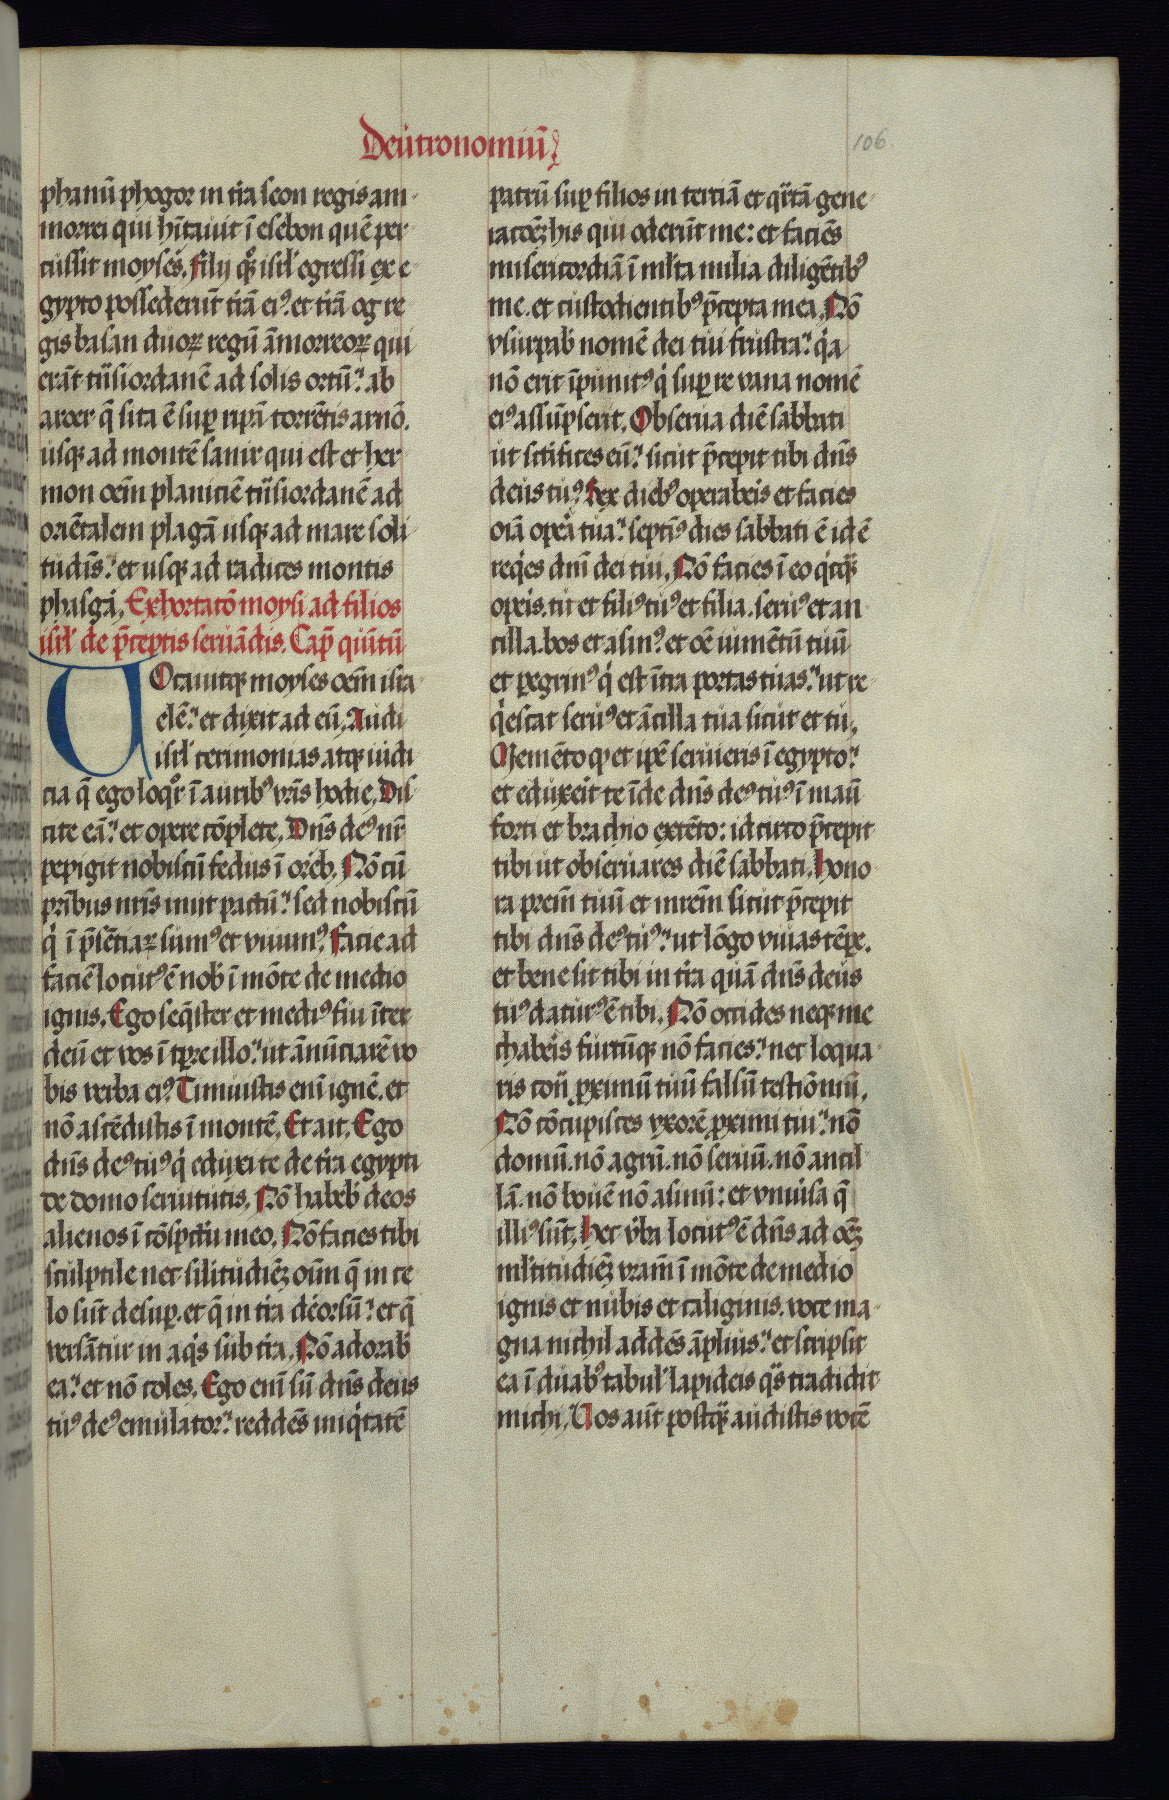 Deutronomiū
106
phanū phogor in tr̄a seon regis am-
morrei qui hītauit ī esebon quē per-
cussit moyses. Filij qͦꝫ isrl' egressi ex e-
gypto possederūt tr̄ā eiꝰ. et tr̄ā og re
gis basan duoꝝ regū āmorreoꝝ qui
erāt trn̄siordanē ad solis ortū. ab
aroer q̄ sita ē sup̱ ripā torrētis arnō.
usqꝫ ad montē sanir qui est et her-
mon oēm planiciē trn̄siordanē ad
oriētalem plagā usqꝫ ad mare soli-
tudīs. et usqꝫ ad radices montis
phasga. Exhortatō moysi ad filios
isrl' de p̄ceptis seruādis. Cap̄ quītū
UOcauitqꝫ moyses oēm isra-
elē. et dixit ad eū. Audi
isrl' cerimonias atqꝫ iudi
cia q̄ ego loqͦr ī auribꝰ vrīs hodie. Dis
cite ea. et opere cōplete. Dn̄s deꝰ nr̄
pepigit nobiscū fedus ī oreb. Nō cū
pr̄ibus nrīs iniit pactū. sed nobiscū
qͥ ī p̄sētiaꝝ sumꝰ et viuimꝰ. Facie ad
faciē locutꝰ ē nob̄ ī mōte de medio
ignis. Ego seq̄ster et mediꝰ fui īter
deū et vos ī tp̱re illo. ut ānūciarē vo
bis verba eiꝰ. Timuistis eni ignē. et
nō ascēdistis ī montē. Et ait. Ego
dn̄s deꝰ tuꝰ qͥ eduxi te de tr̄a egypti
de domo seruitutis. Nō habeb̄ deos
alienos ī cōspctū meo. Nō facies tibi
sculptile nec silitudiēꝫ oīm q̄ in ce
lo sūt desup̱. et q̄ in tr̄a deorsū. et q̄
versātur in aqͥs sub tr̄a. Nō adorab̄
ea. et nō coles. Ego eni sū dn̄s deus
tuꝰ deꝰ emulator. reddēs iniqͥtatē
patrū sup̱ filios in terciā et qͣrtā gene-
racōēꝫ his qui oderūt me: et faciēs
misericordiā ī ml'ta milia diligētibꝰ
me. et custodientibꝰ p̄cepta mea. Nō
vsurpab̄ nomē dei tui frustra. qͥa
nō erit īpunitꝰ qͥ sup̱ re vana nomē
eiꝰ assūpserit. Obserua diē sabbati
ut sctifices eū. sicut p̄cepit tibi dn̄s
deus tuꝰ. Sex diebꝰ operabeis et facies
oīa opera tua. septīꝰ dies sabbati ē id ē
reqͥes dn̄i dei tui. Nō facies ī eo qͥcqͣꝫ
opeis. tu et filiꝰ tuꝰ et filia. seruꝰ et an
cilla. bos et asinꝰ. et oē iumētū tuū
et ꝑegrinꝰ qͥ est īt̄ra portas tuas. ut re-
qͥescat seruꝰ et ācilla tua sicut et tu.
Memēto qꝫ et ip̄e seruieris ī egypto.
et eduxeit te īde dn̄s deꝰ tuꝰ ī manū
forti et brachio extēto: idcirco p̄cepit
tibi ut obseruares diē sabbati. Hono
ra prem̄ tuū et mrem̄ sicut p̄cepit
tibi dn̄s deꝰ tuꝰ. ut lōgo viuas tēpe.
et bene sit tibi in tr̄a quā dn̄s deus
tuꝰ daturꝰ ē tibi. Nō occides neqꝫ me
chabeis furtūqꝫ nō facies. nec loqua-
ris con̄ ꝓximū tuū falsū testiōniū.
Nō cōcupisces vxorē ꝓximi tui. nō
domū. nō agrū. nō seruū. nō ancil-
lā. nō bouē nō asinū: et vniūsa q̄
illiꝰ sūt. Hec v̄ba locutꝰ ē dn̄s ad oēꝫ
ml'titudiēꝫ vram̄ ī mōte de medio
ignis et nubis et caliginis. voce ma-
gna nichil addēs āplius. et scripsit
ea ī duabꝰ tabul' lapideis qͣs tradidit
michi. Uos aūt postqͣꝫ audistis vocē